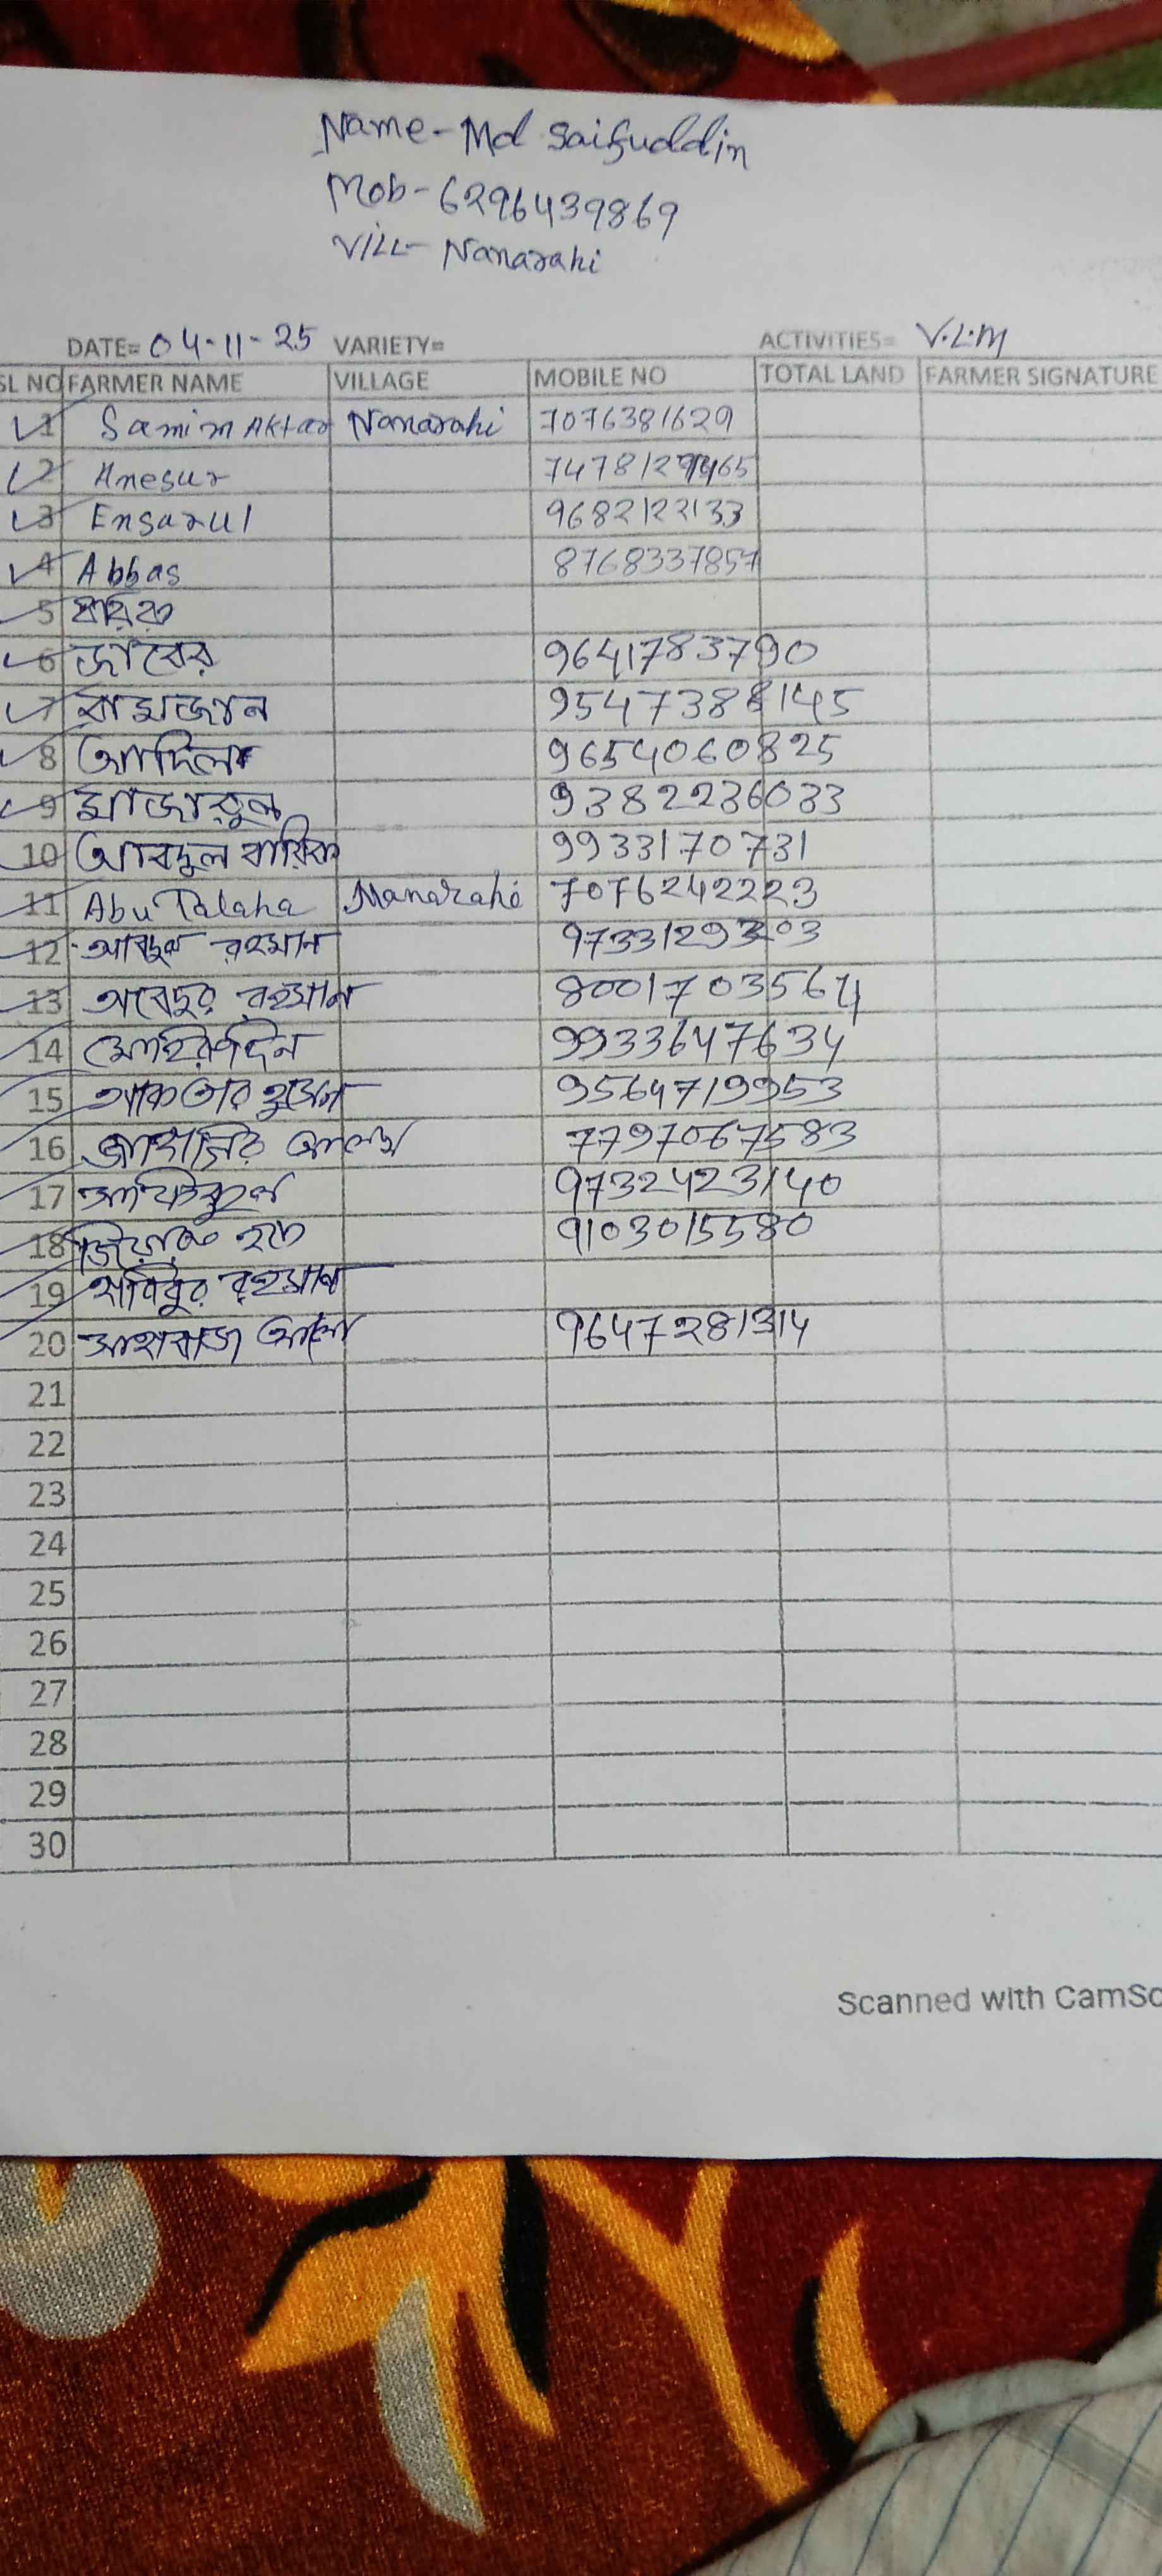 Name- Md Saifuddin
Mob- 6296439869
Vill- Nanarahi
DATE= 04-11-25 VARIETY= ACTIVITIES= V.L.M
SL NO FARMER NAME VILLAGE MOBILE NO TOTAL LAND FARMER SIGNATURE
1 Samim Aktar Nanarahi 7076381629
2 Anesur
3 Ensarul 9682122133
4 Abbas 8768337857
5
6 জাবের 9641783790
7 রামজান 9547388145
8 আদিল 9654060825
9 মাজারুল 9382236033
10 আবদুল বারিক 9933170731
11 Abu Talaha Nanarahi 7076242223
12 আবদুল রহমান 9733129
13 রহমান 8001703567
14 9933647634
15 আকতার 9564719953
16 জাহাঙ্গির আলম 7797067583
17 9732423140
18 হক 9103015580
19 হাবিবুর রহমান
20 আলম 9647281314
21
22
23
24
25
26
27
28
29
30
Scanned with CamSc